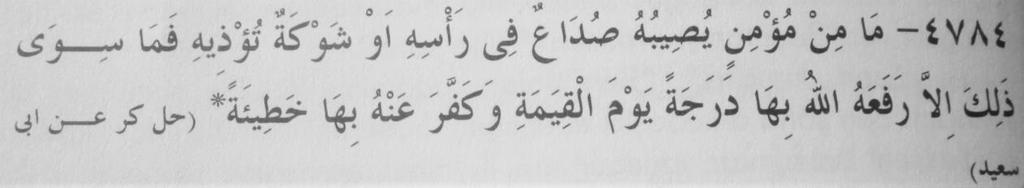 ٤٧٨٤– مَا مِنْ مُؤْمِنٍ يُصِيبُهُ صُدَاعٌ فِى رَأْسِهِ اَوْ شَوْكَةٌ تُؤْذِيهِ فَمَا سِوَى
ذَلِكَ اِلاَّ رَفَعَهُ اللهُ بِهَا دَرَجَةً يَوْمَ الْقِيَمَةِ وَكَفَّرَ عَنْهُ بِهَا خَطِيئَةً* (حل كر عن ابى
سعيد)